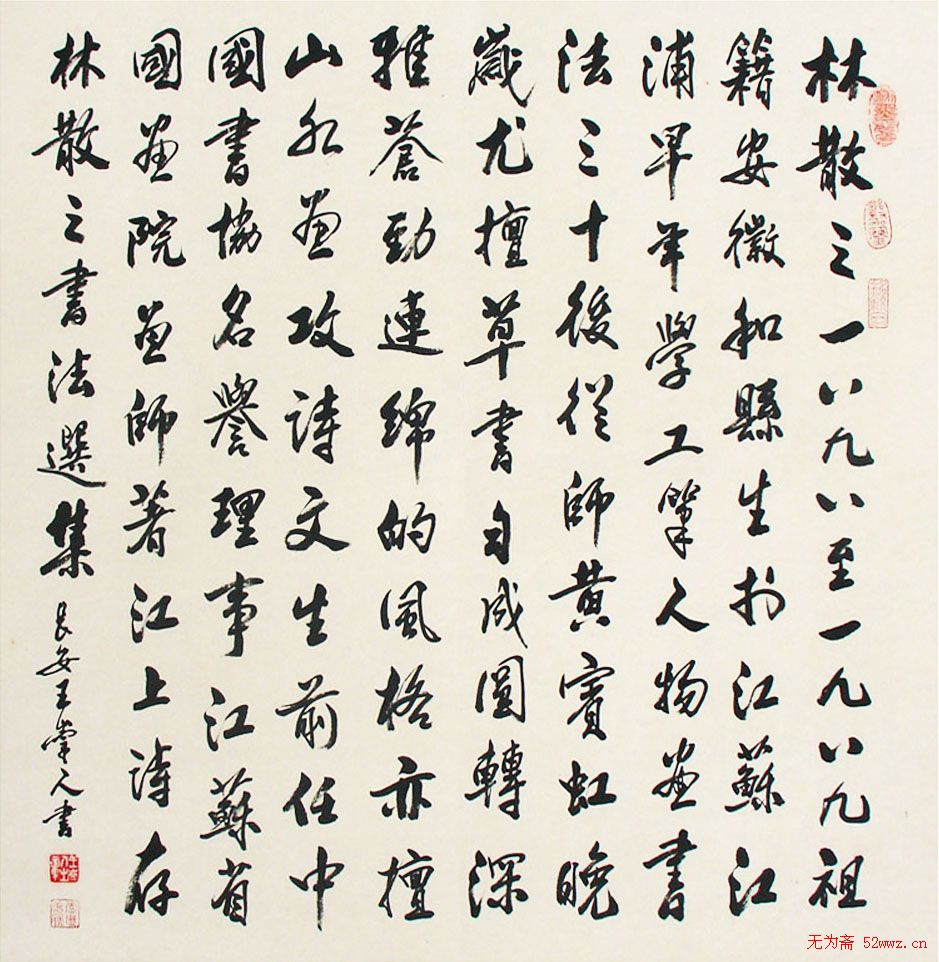 林散之一八九八至一九八九祖
籍安徽和縣生於江蘇江
浦早年學工筆人物畫書
法三十後從師黃賓虹晚
歲尤擅草書自成圓轉深
雅蒼勁連綿的風格亦擅
山水畫攻詩文生前任中
國書協名譽理事江蘇省
國畫院畫師著江上詩存
林散之書法選集 長安王崇人書
无为斋 52wwz.cn